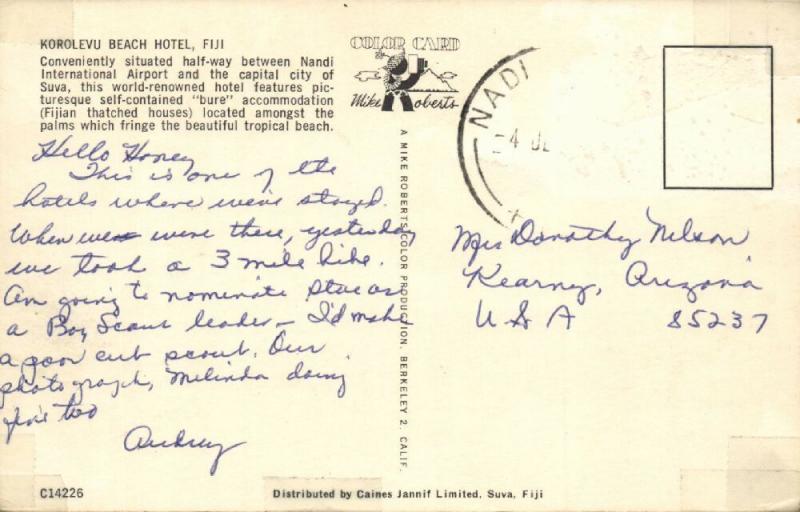 KOROLEVU BEACH HOTEL, FIJI
Conveniently situated half-way between Nandi
International Airport and the capital city of
Suva, this world-renowned hotel features pic-
turesque self-contained "bure" accommodation
(Fijian thatched houses) located amongst the
palms which fringe the beautiful tropical beach.
COLOR CARD
Mike Roberts
NADI
4 JL
Hello Honey
This is one of the
hotels where we've stayed.
When we were there, yesterday
we took a 3 mile hike.
Am going to nominate as
a Boy Scout leader - I'd make
a poor cub scout. Our
photograph, Melinda doing
fine too
Audrey
A MIKE ROBERTS COLOR PRODUCTION, BERKELEY 2, CALIF.
Mrs Dorothy Nelson
Kearny, Arizona
USA 85237
C14226
Distributed by Caines Jannif Limited, Suva, Fiji